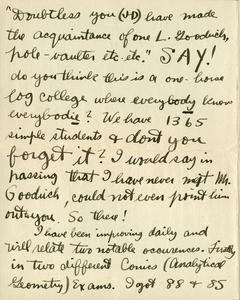 "Doubtless you (J-D) have made
the acquaintance of one L. Goodrich,
pole-vaulter etc. etc." SAY!
do you think this is a one-horse
log college where everybody knows
everybodie? We have 1365
simple students & don't you
forget it? I would say in
passing that I have never met Mr.
Goodrich, could not even point him
out to you. So there!
I have been improving daily and
will relate two notable occurences. Firstly
in two different Conics (Analytical
Geometry) Exams. I got 88 & 85